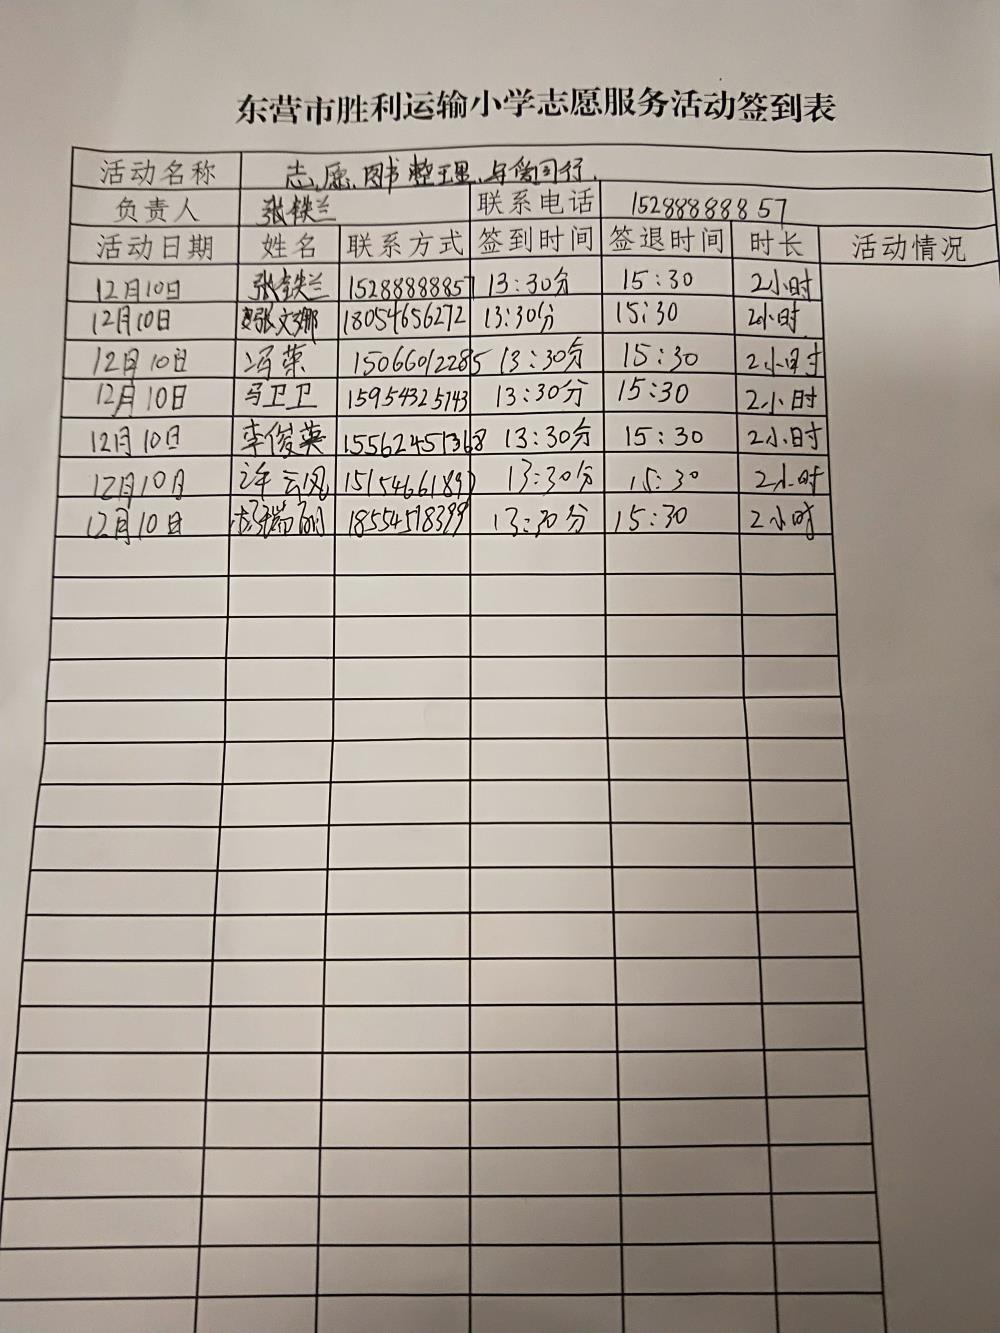 东营市胜利运输小学志愿服务活动签到表
活动名称 志愿图书整理,与爱同行.
负责人 张铁兰 联系电话 15288888857
活动日期 姓名 联系方式 签到时间 签退时间 时长 活动情况
12月10日 张铁兰 15288888857 13:30分 15:30 2小时
12月10日 张文娜 18054656272 13:30分 15:30 2小时
12月10日 冯荣 15066012285 13:30分 15:30 2小时
12月10日 马卫卫 15954325743 13:30分 15:30 2小时
12月10日 李俊英 15562451368 13:30分 15:30 2小时
12月10日 许云凤 15154661897 13:30分 15:30 2小时
12月10日 18554518399 13:30分 15:30 2小时